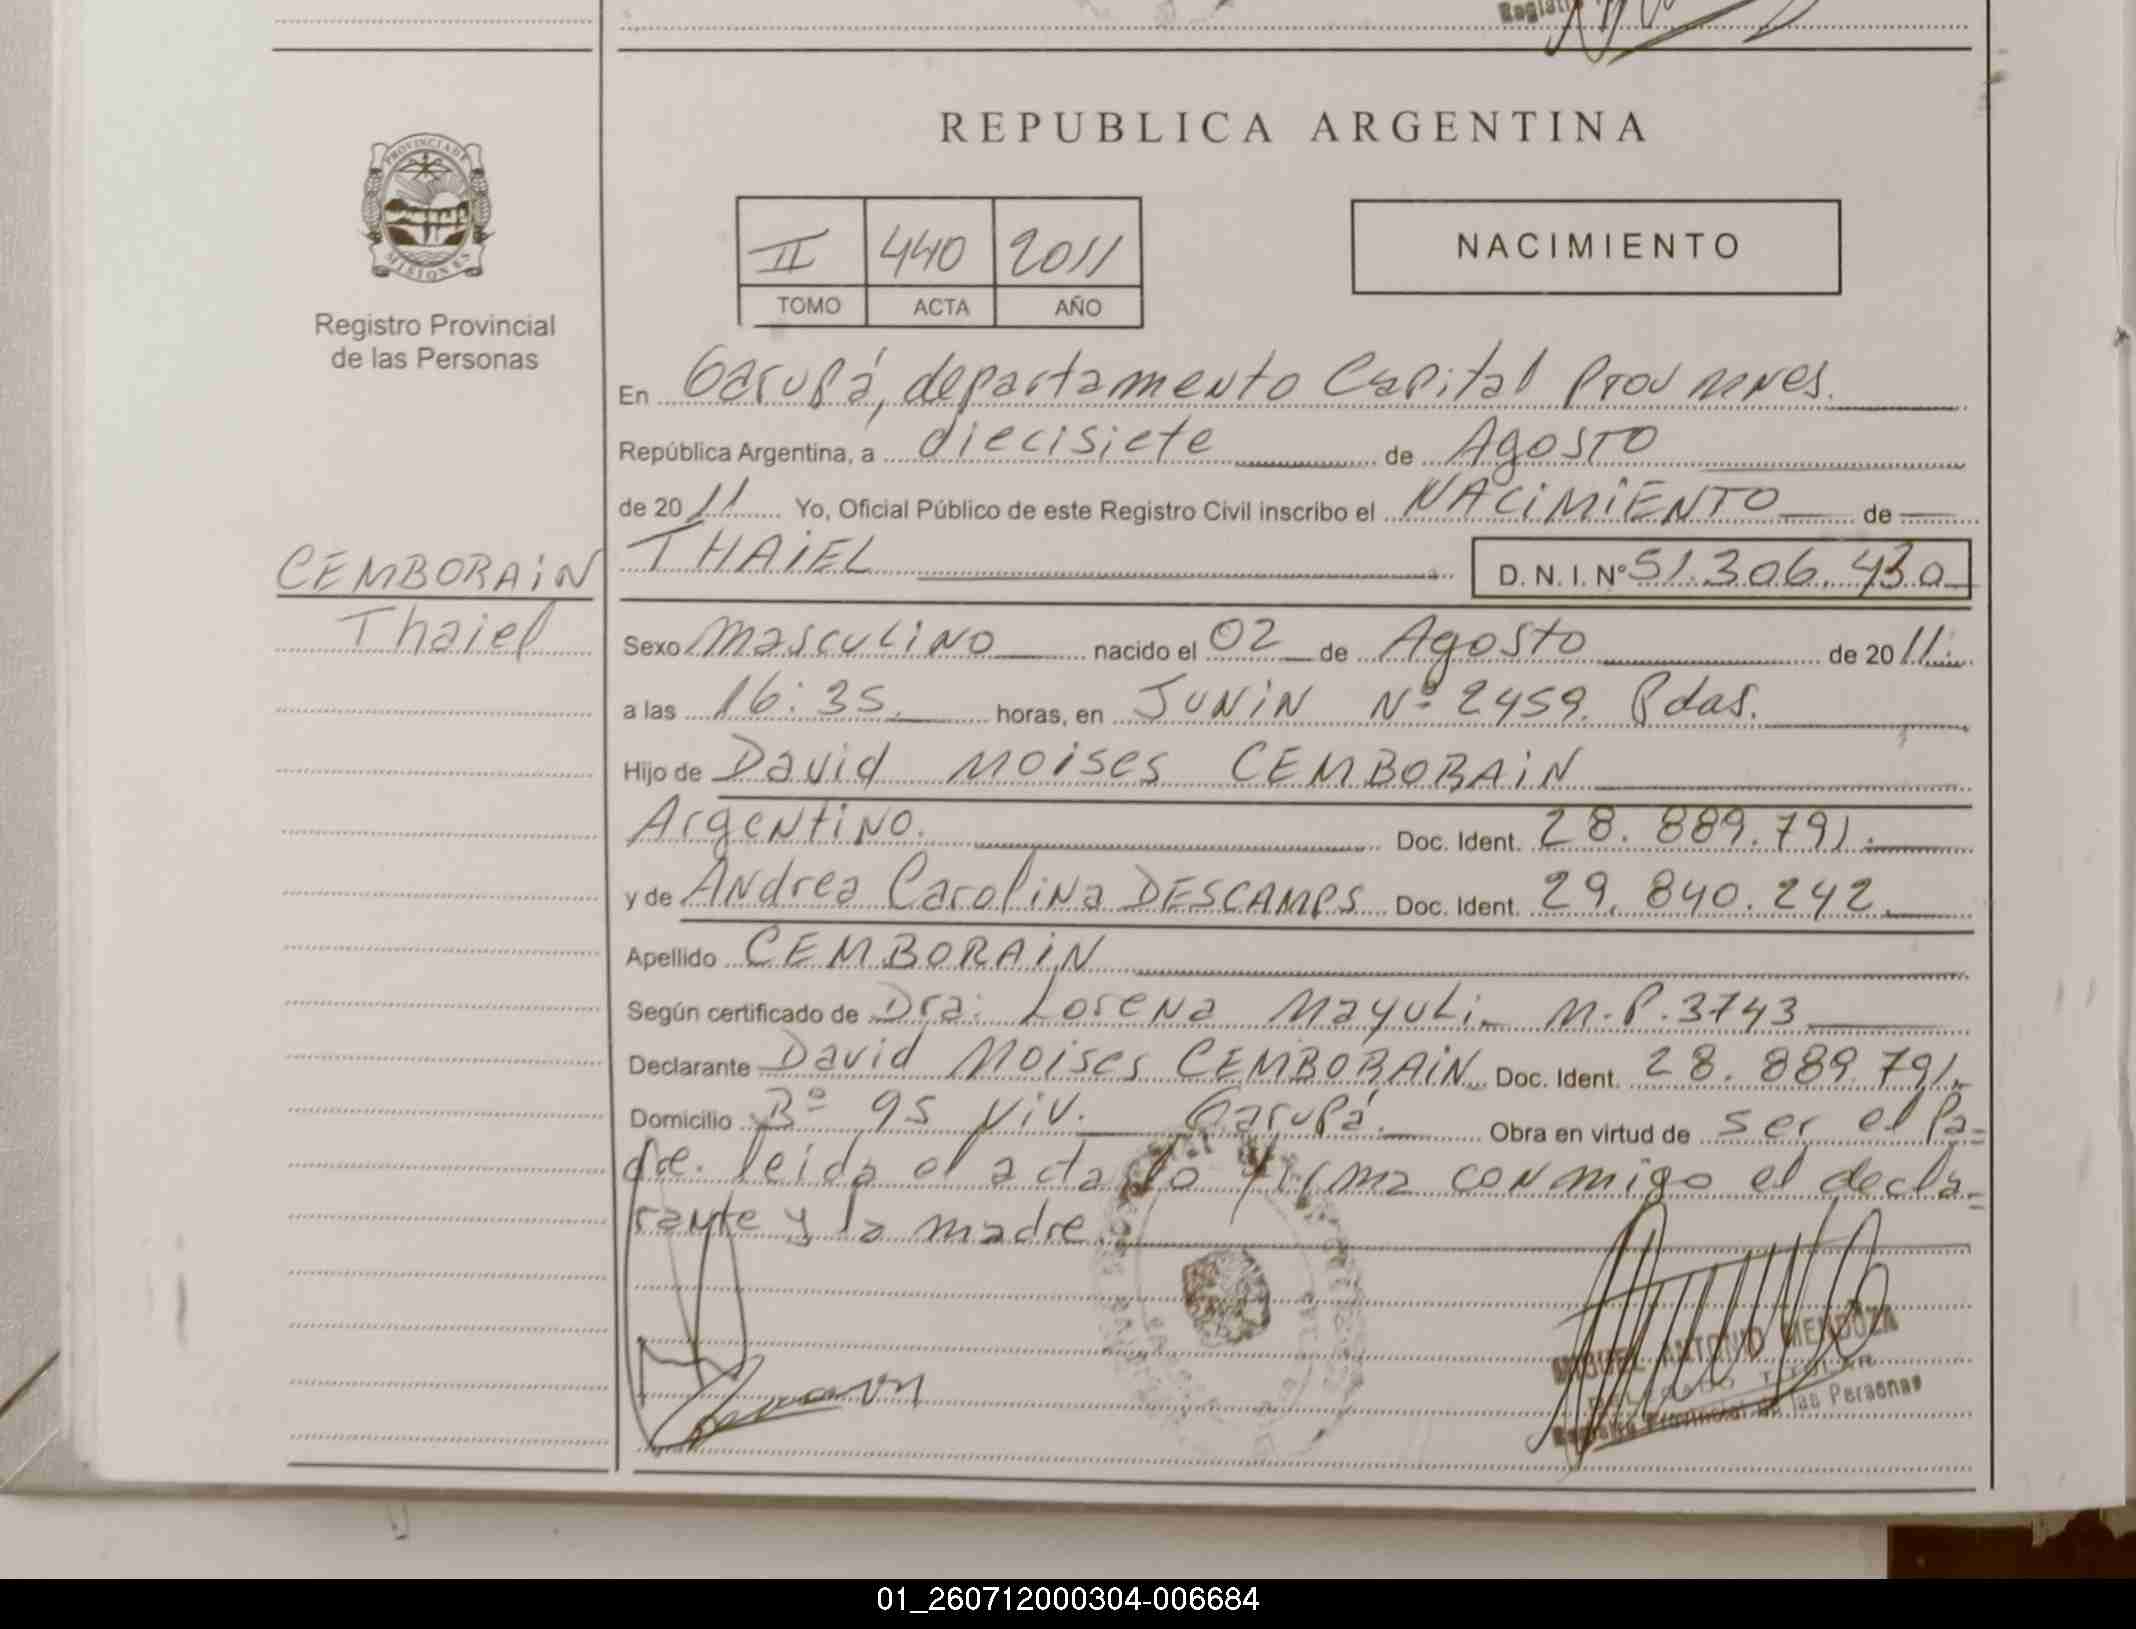 REPUBLICA ARGENTINA
PROVINCIA DE
MISIONES
Registro Provincial
de las Personas
II 440 2011
TOMO ACTA AÑO
NACIMIENTO
En Garupá, departamento Capital Prov
República Argentina, a diecisiete de Agosto
de 2011 Yo, Oficial Público de este Registro Civil inscribo el NACIMIENTO de
CEMBORAIN
Thaiel
THAIEL D. N. I. Nº 51.306.430
Sexo masculino nacido el 02 de Agosto de 2011.
a las 16:35. horas, en JUNIN Nº 2459. Pdas.
Hijo de David Moises CEMBORAIN
Argentino. Doc. Ident. 28.889.791.
y de Andrea Carolina DESCAMPS Doc. Ident. 29.840.242.
Apellido CEMBORAIN
Según certificado de Dra: Lorena Mayuli M.P. 3743
Declarante David Moises CEMBORAIN Doc. Ident. 28.889.791.
Domicilio Bº 95 viv. Garupá. Obra en virtud de ser el Pa-
dre. leida el acta la firma conmigo el decla-
rante y la madre.
MIGUEL ANTONIO MENDOZA
Registro Provincial de las Personas
01_260712000304-006684